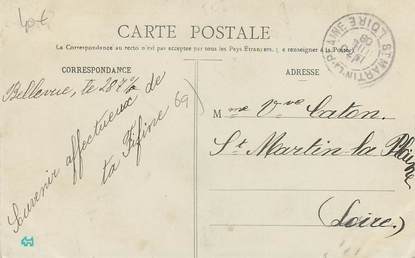 40€
CARTE POSTALE
La Correspondance au recto n'est pas acceptée par tous les Pays Etrangers. (Se renseigner à la Poste)
CORRESPONDANCE
ADRESSE
Bellevue, le 28
Souvenir affectueux de
ta Fifine
69
Mme Vve Caton.
St Martin-la Plaine
(Loire.)
ST MARTIN-LA-PLAINE
LOIRE
08